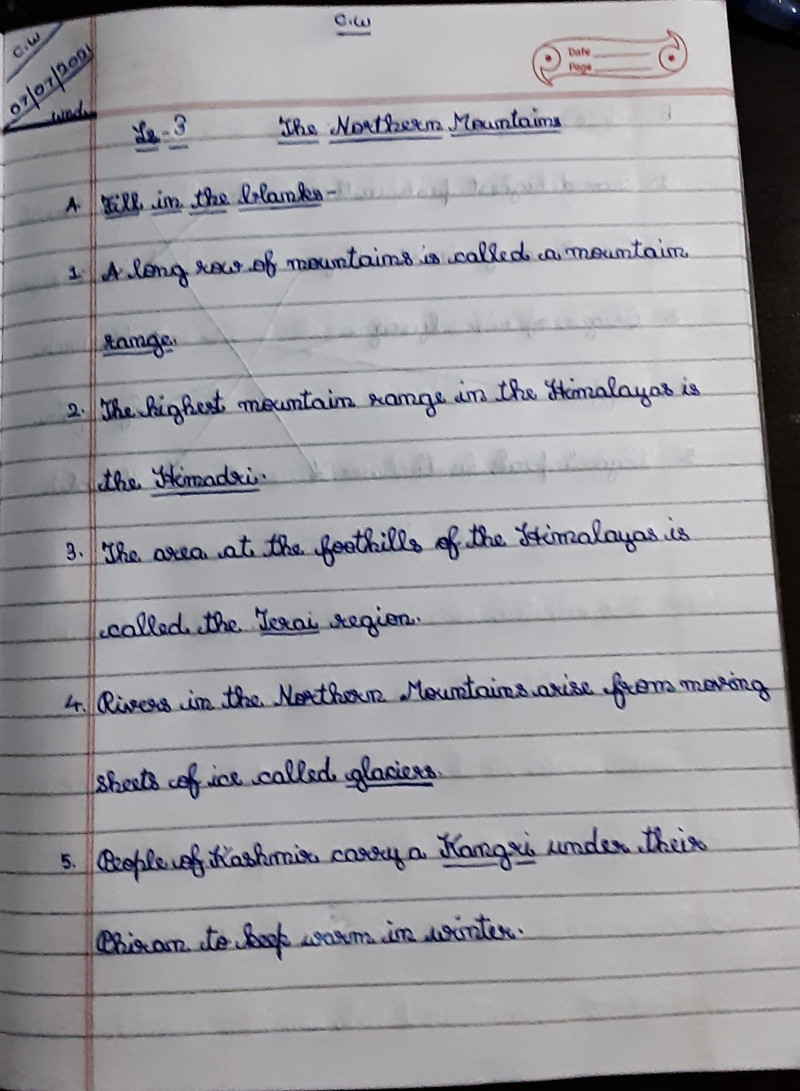 C.W
C.W
07/07/2021
Wed.
Date
Page
Ls-3 The Northern Mountains
A. Fill in the blanks-
1. A long row of mountains is called a mountain
range.
2. The highest mountain range in the Himalayas is
the Himadri.
3. The area at the foothills of the Himalayas is
called the Terai region.
4. Rivers in the Northern Mountains arise from moving
sheets of ice called glaciers.
5. People of Kashmir carry a Kangri under their
Phiran to keep warm in winter.